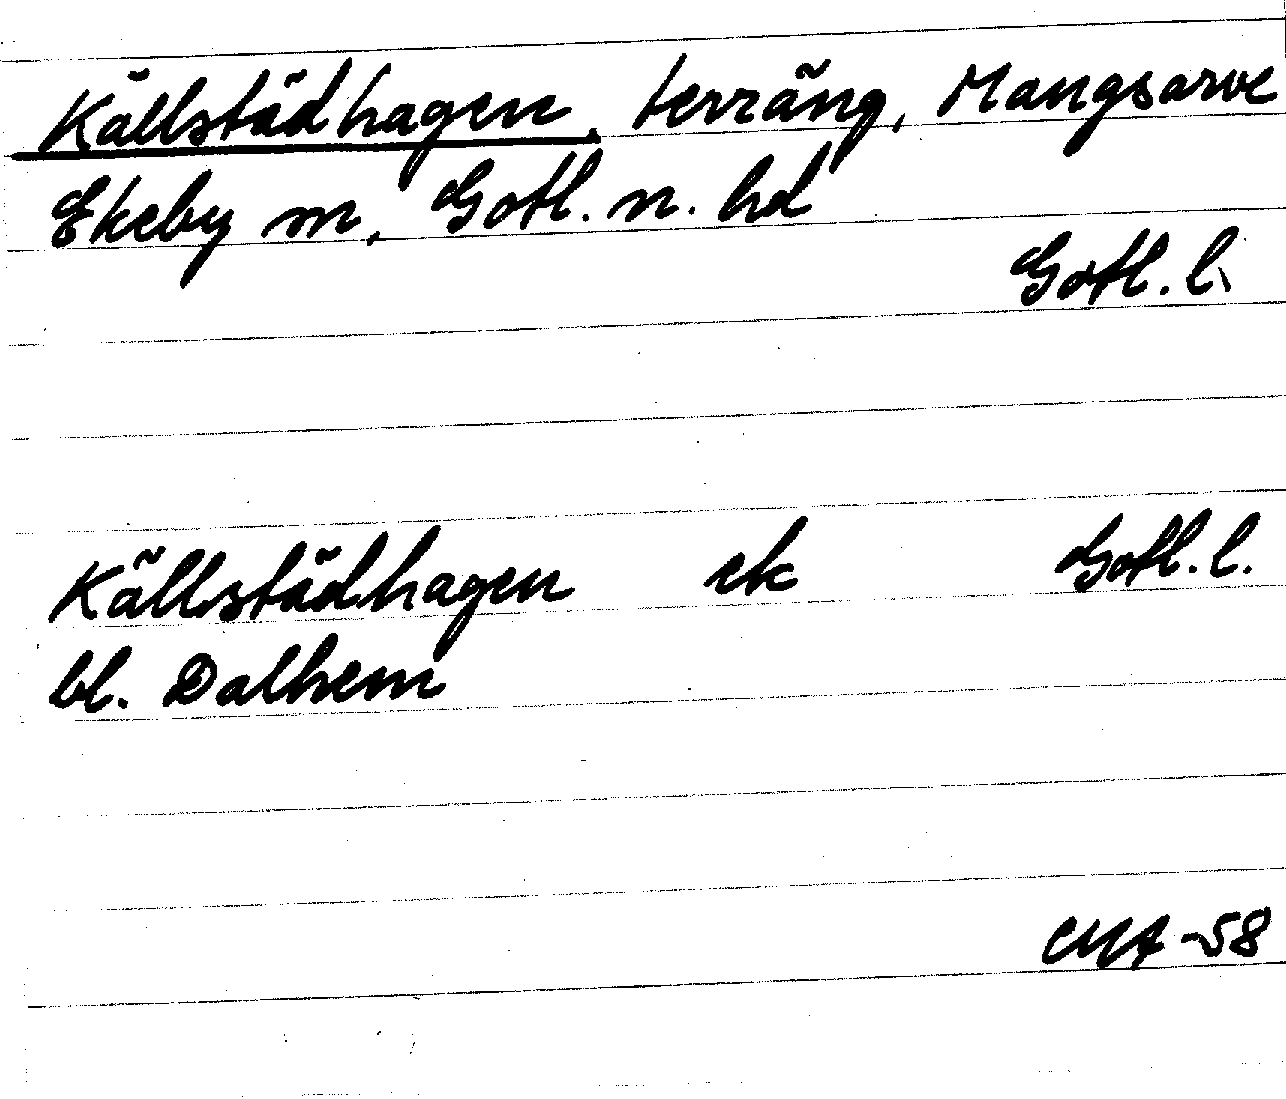 Källstädhagen, terräng, Mangsarve
Ekeby sn, Gotl. n. hd
Gotl. l.
Källstädhagen ek Gotl. l.
bl. Dalhem
CMA -58